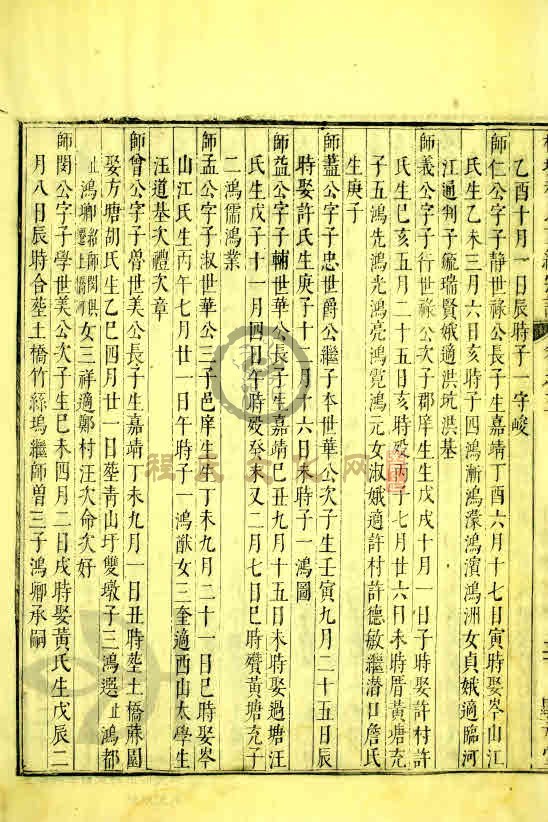 乙酉十月一日辰時子一守峻
師仁公字子靜世祿公長子生嘉靖丁酉六月十七日寅時娶岑山江
氏生乙未三月六日亥時子四鴻漸鴻濛鴻濱鴻洲女貞娥適臨河
江通判子瑞賢娥適洪坑洪基
師義公字子行世祿公次子郡庠生生戊戌十月一日子時娶許村許
氏生己亥五月二十五日亥時殁丙子七月廿六日未時厝黃塘充
子五鴻先鴻光鴻亮鴻霓鴻元女淑娥適許村許德敏繼潛口詹氏
生庚子
師藎公字子忠世爵公繼子本世華公次子生壬寅九月二十五日辰
時娶許氏生庚子十二月十六日未時子一鴻圖
師益公字子輔世華公長子生嘉靖己丑九月十五日未時娶過塘汪
氏生戊子十一月四日午時殁癸未又二月七日巳時殯黃塘充子
二鴻儒鴻業
師孟公字子淑世華公三子邑庠生生丁未九月二十一日巳時娶岑
山江氏生丙午七月廿一日午時子一鴻猷女三奎適西山太學生
汪道基次禮次章
師曾公字子曾世美公長子生嘉靖丁未九月一日丑時塟土橋蘇園
娶方塘胡氏生乙巳四月廿一日塟靑山圩雙墩子三鴻選止鴻都
止鴻卿紹師閔俱遷土橋河女三祥適鄭村汪次命次好
師閔公字子學世美公次子生己未四月二日戌時娶黃氏生戊辰二
月八日辰時合塟土橋竹絲塢繼師曾三子鴻卿承嗣
程氏文化网